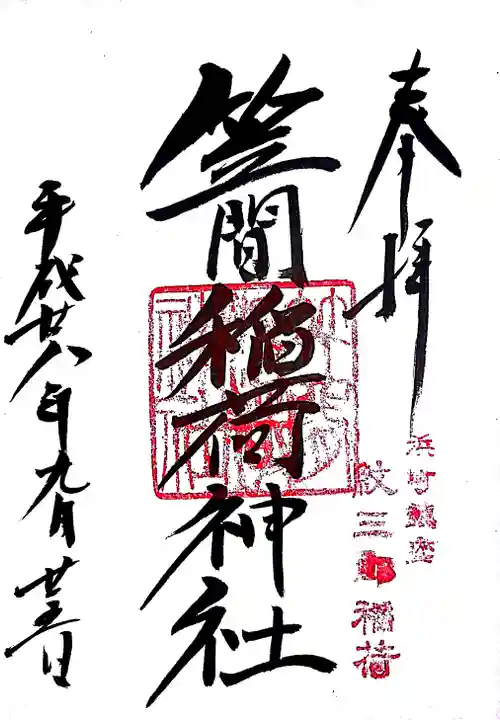 奉拝
浜町鎮座
紋三郎稲荷
笠間稲荷神社
平成廿八年九月廿五日